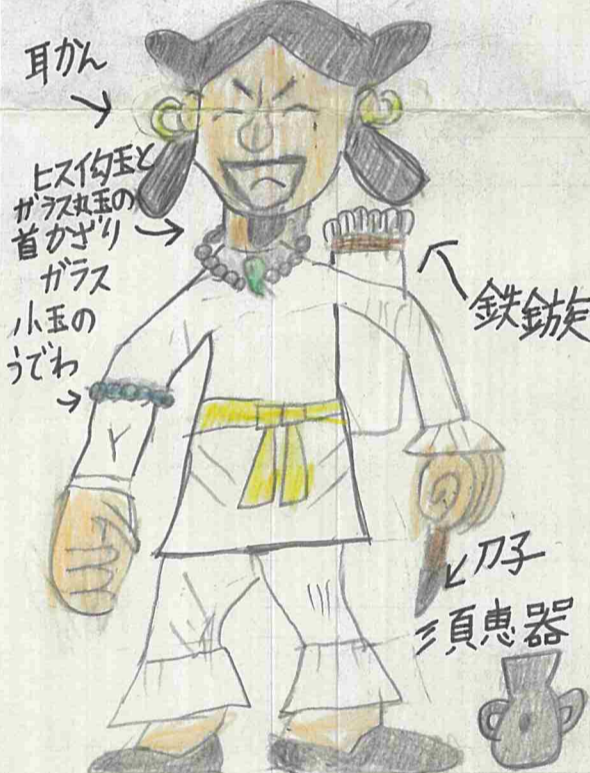 耳かん
ヒスイ勾玉と
ガラス丸玉の
首かざり
ガラス
小玉の
うでわ
鉄鏃
刀子
須恵器